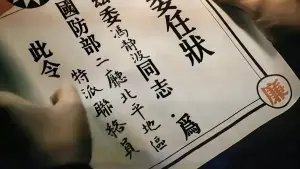 委任狀
茲委馮靜波同志，爲
國防部二廳北平地區
特派聯務員
此令
廉